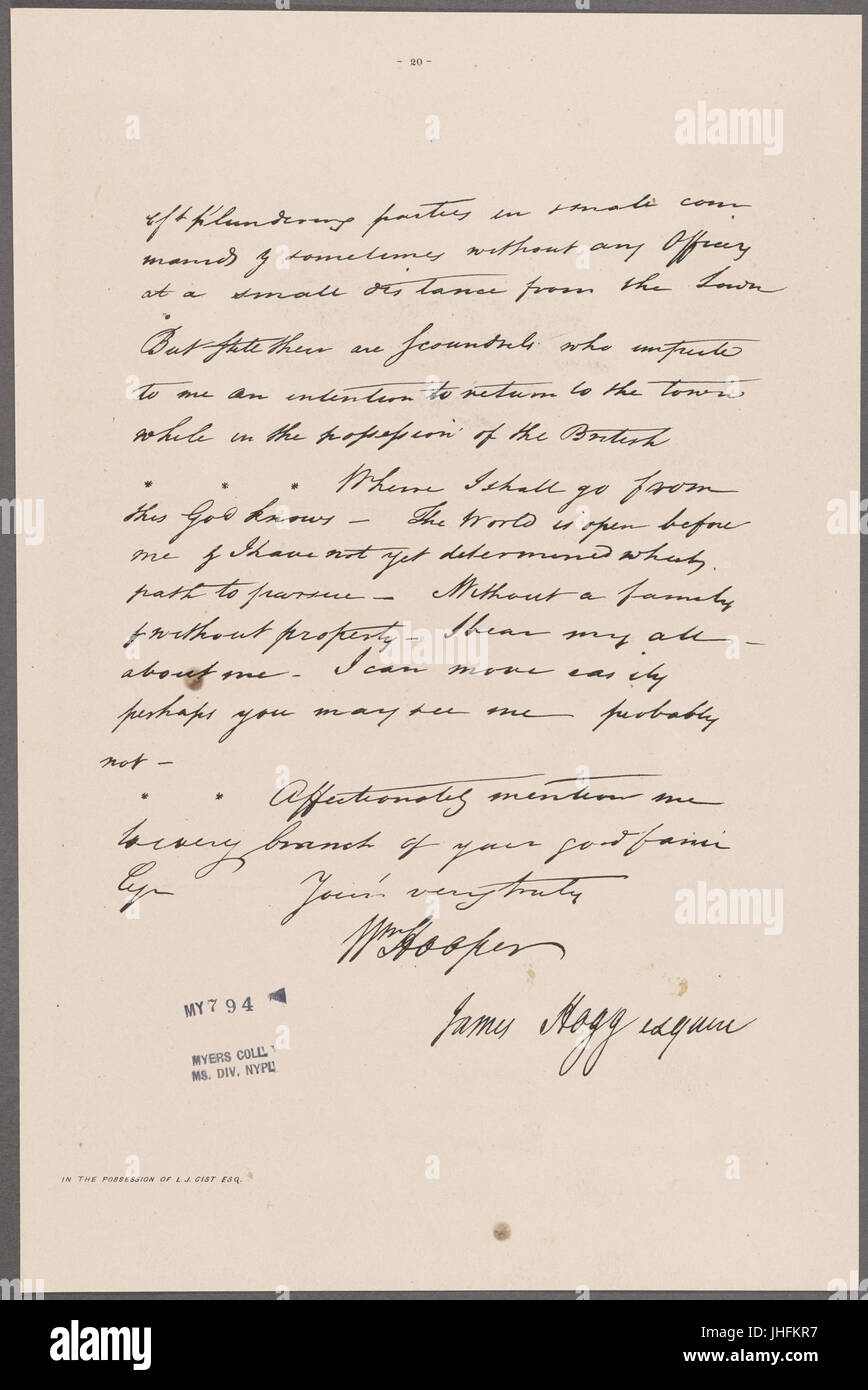 - 20 -
plundering parties in small com
mands & sometimes without any Officers
at a small distance from the Town
But there are Scoundrels who impute
to me an intention to return to the town
while in the possession of the British
* * * Where I shall go from
this God knows - The World is open before
me & I have not yet determined what
path to pursue - Without a family
& without property - I bear my all -
about me - I can move easily
perhaps you may see me probably
not -
* * Affectionately mention me
to every branch of your good fami
Yours very truly
Wm Hooper
James Hogg esquire
MY 794
MYERS COLL.
MS. DIV. NYPL
IN THE POSSESSION OF L.J. CIST ESQ.
alamy
alamy
alamy
Image ID: JHFKR7
www.alamy.com